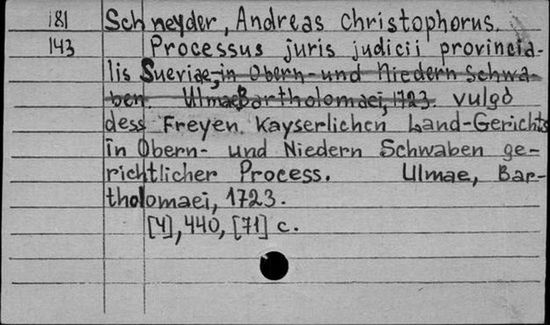 181 Schneyder, Andreas Christophorus.
143 Processus juris judicii provincia-
lis Sueviae, in Obern- und Niedern Schwa-
ben. Ulmae Bartholomaei, 1723. vulgo
dess Freyen Kayserlichen Land-Gerichts
in Obern- und Niedern Schwaben ge-
richtlicher Process. Ulmae, Bar-
tholomaei, 1723.
[4], 440, [71] c.